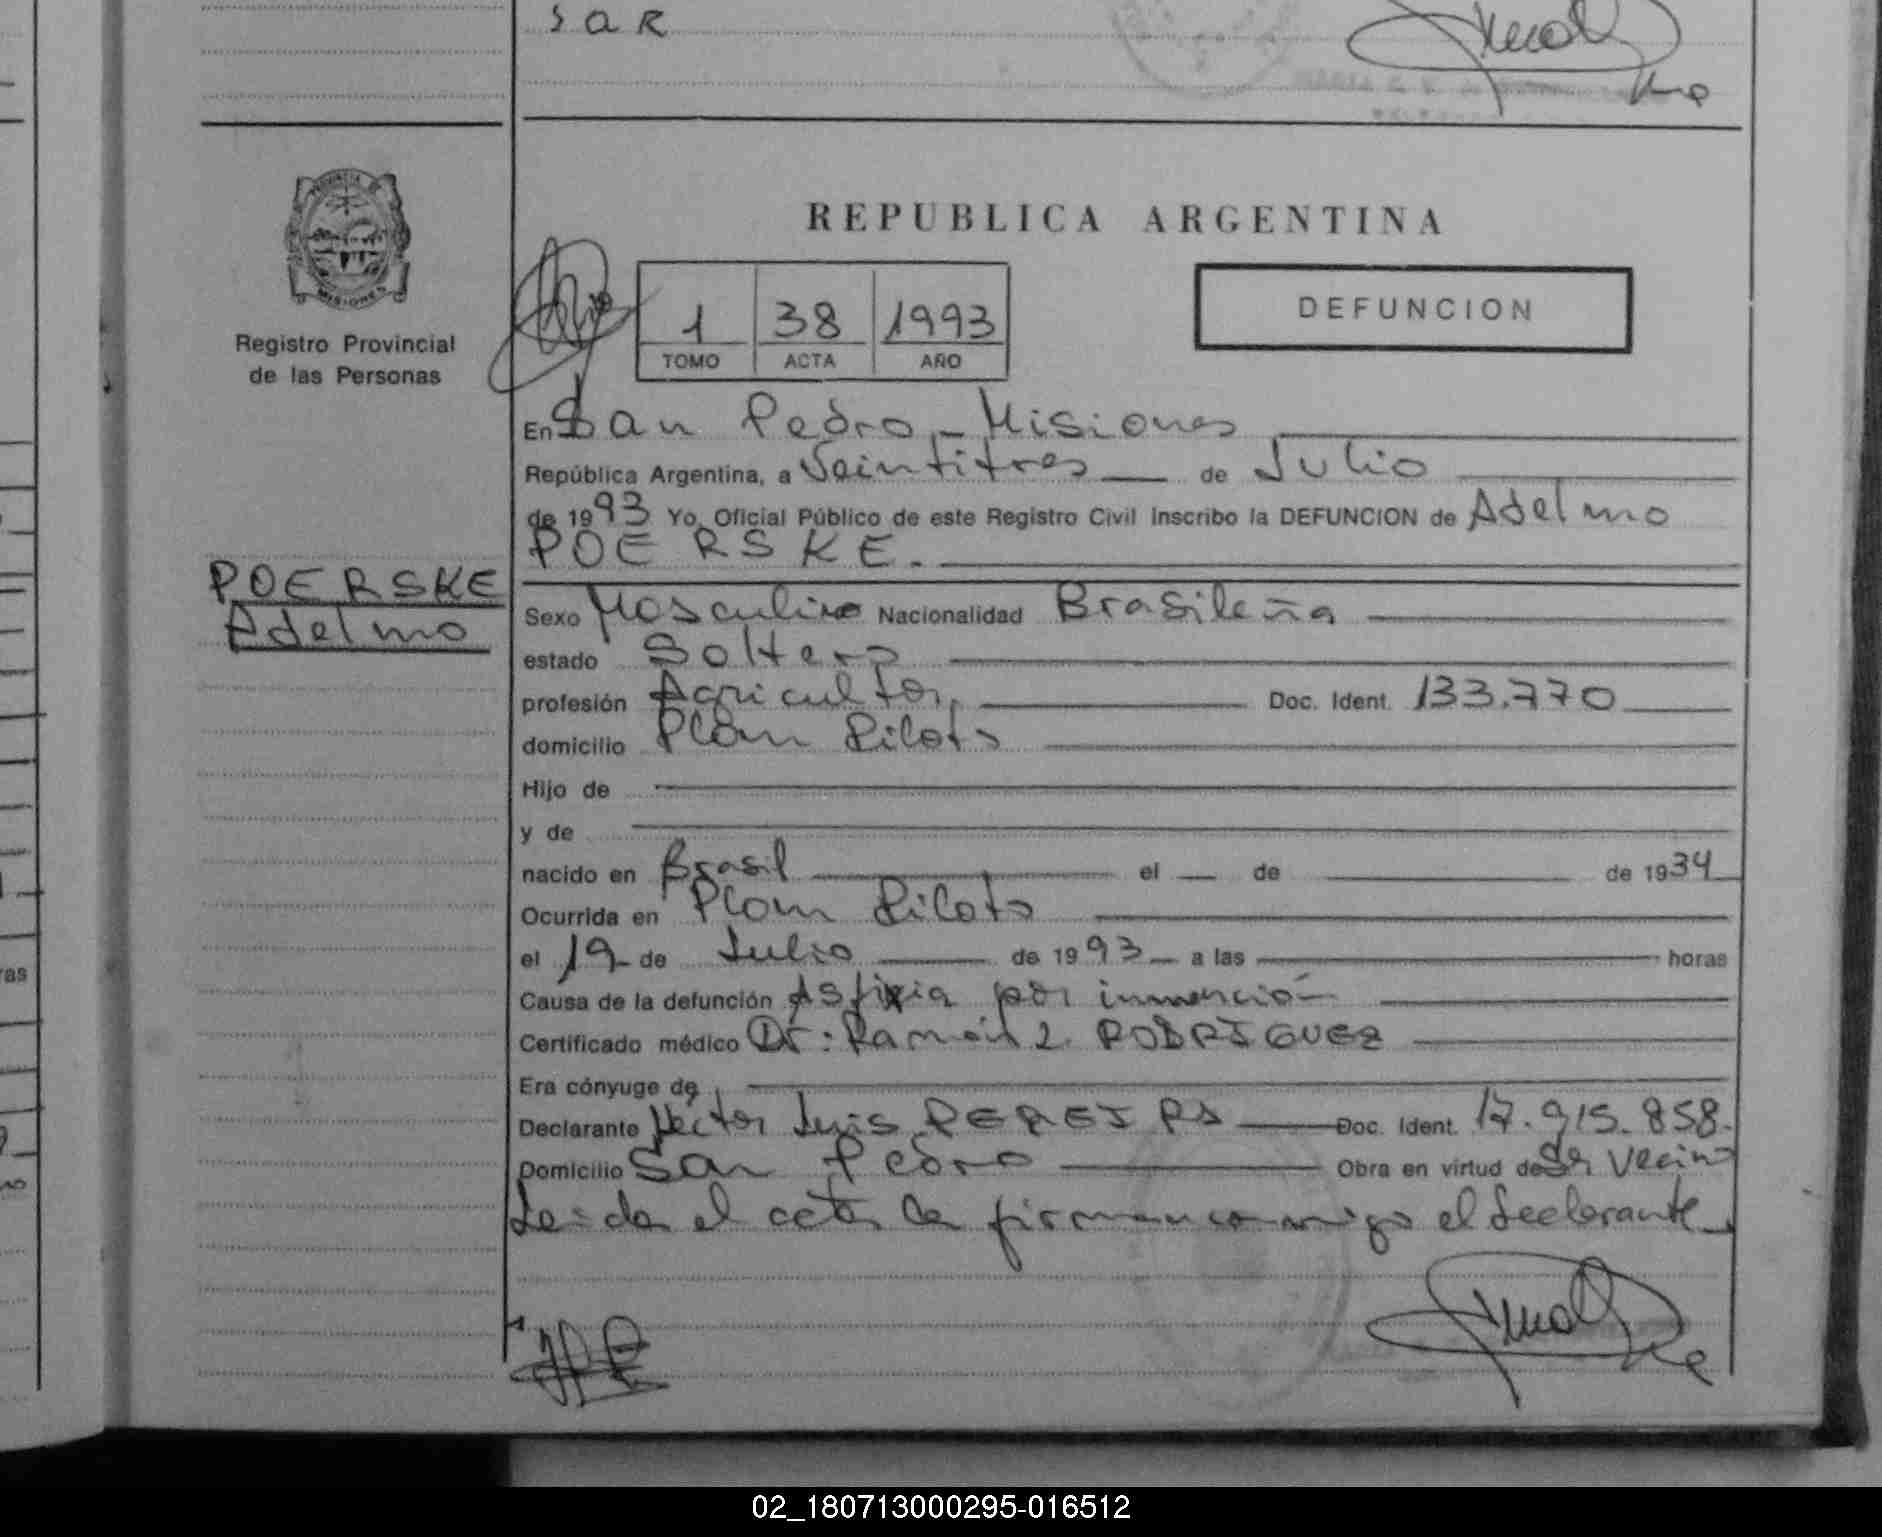 sar
REPUBLICA ARGENTINA
PROVINCIA DE
MISIONES
Registro Provincial
de las Personas
1 38 1993
TOMO ACTA AÑO
DEFUNCION
En San Pedro - Misiones
República Argentina, a Veintitres de Julio
de 1993 Yo, Oficial Público de este Registro Civil Inscribo la DEFUNCION de Adelmo
POERSKE.
POERSKE
Adelmo
Sexo Masculino Nacionalidad Brasileña
estado Soltero
profesión Agricultor. Doc. Ident. 133.770
domicilio Plan Piloto
Hijo de
y de
nacido en Brasil el de de 1934
Ocurrida en Plan Piloto
el 19 de Julio de 1993 a las horas
Causa de la defunción Asfixia por inmención
Certificado médico Dr: Ramón L. RODRIGUEZ
Era cónyuge de
Declarante Héctor Luis PEREIRA Doc. Ident. 17.915.858.
Domicilio San Pedro Obra en virtud de Ser Vecino
Leida el acta la firman conmigo el declarante
ras
02_180713000295-016512